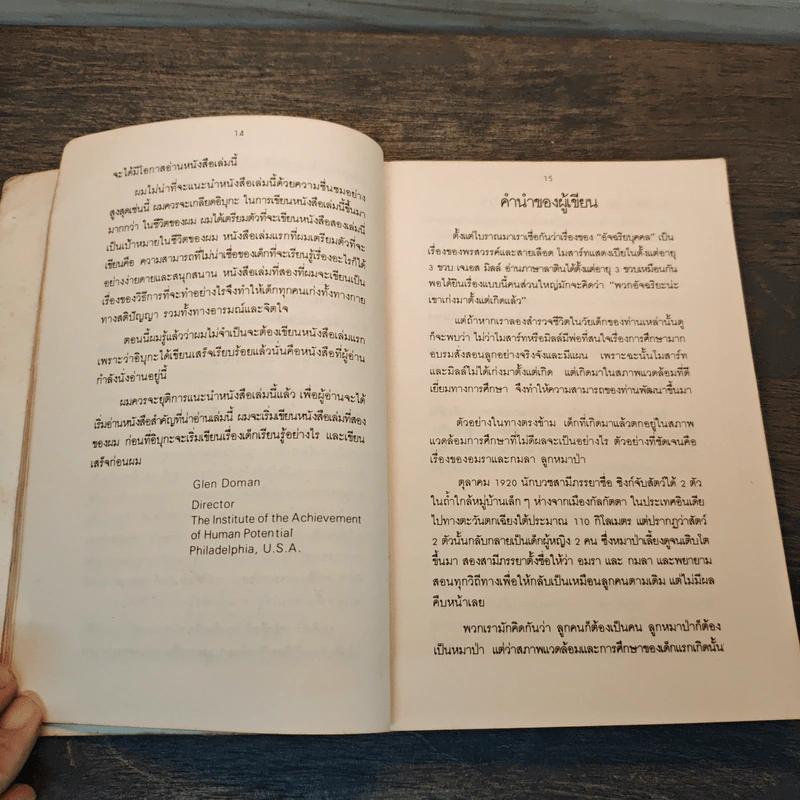 14
จะได้มีโอกาสอ่านหนังสือเล่มนี้
ผมไม่น่าที่จะแนะนำหนังสือเล่มนี้ด้วยความชื่นชมอย่าง
สูงสุดเช่นนี้ ผมควรจะเกลียดอิบุกะ ในการเขียนหนังสือเล่มนี้ขึ้นมา
มากกว่า ในชีวิตของผม ผมได้เตรียมตัวที่จะเขียนหนังสือสองเล่มนี้
เป็นเป้าหมายในชีวิตของผม หนังสือเล่มแรกที่ผมเตรียมตัวที่จะ
เขียนคือ ความสามารถที่ไม่น่าเชื่อของเด็กที่จะเรียนรู้เรื่องอะไรก็ได้
อย่างง่ายดายและสนุกสนาน หนังสือเล่มที่สองที่ผมจะเขียนเป็น
เรื่องของวิธีการที่จะทำอย่างไรจึงทำให้เด็กทุกคนเก่งทั้งทางกาย
ทางสติปัญญา รวมทั้งทางอารมณ์และจิตใจ
ตอนนี้ผมรู้แล้วว่าผมไม่จำเป็นจะต้องเขียนหนังสือเล่มแรก
เพราะว่าอิบุกะได้เขียนเสร็จเรียบร้อยแล้วนั่นคือหนังสือที่ผู้อ่าน
กำลังนั่งอ่านอยู่นี้
ผมควรจะยุติการแนะนำหนังสือเล่มนี้แล้ว เพื่อผู้อ่านจะได้
เริ่มอ่านหนังสือสำคัญที่น่าอ่านเล่มนี้ ผมจะเริ่มเขียนหนังสือเล่มที่สอง
ของผม ก่อนที่อิบุกะจะเริ่มเขียนเรื่องเด็กเรียนรู้อย่างไร และเขียน
เสร็จก่อนผม
Glen Doman
Director
The Institute of the Achievement
of Human Potential
Philadelphia, U.S.A.
15
คำนำของผู้เขียน
ตั้งแต่โบราณมาเราเชื่อกันว่าเรื่องของ "อัจฉริยบุคคล" เป็น
เรื่องของพรสวรรค์และสายเลือด โมสาร์ทแสดงเปียโนตั้งแต่อายุ
3 ขวบ เจเอส มิลล์ อ่านภาษาลาตินได้ตั้งแต่อายุ 3 ขวบเหมือนกัน
พอได้ยินเรื่องแบบนี้คนส่วนใหญ่มักจะคิดว่า "พวกอัจฉริยะน่ะ
เขาเก่งมาตั้งแต่เกิดแล้ว"
แต่ถ้าหากเราลองสำรวจชีวิตในวัยเด็กของท่านเหล่านั้นดู
ก็จะพบว่า ไม่ว่าโมสาร์ทหรือมิลล์มีพ่อที่สนใจเรื่องการศึกษามาก
อบรมสั่งสอนลูกอย่างจริงจังและมีแผน เพราะฉะนั้นโมสาร์ท
และมิลล์ไม่ได้เก่งมาตั้งแต่เกิด แต่เกิดมาในสภาพแวดล้อมที่ดี
เยี่ยมทางการศึกษา จึงทำให้ความสามารถของท่านพัฒนาขึ้นมา
ตัวอย่างในทางตรงข้าม เด็กที่เกิดมาแล้วตกอยู่ในสภาพ
แวดล้อมการศึกษาที่ไม่ดีผลจะเป็นอย่างไร ตัวอย่างที่ชัดเจนคือ
เรื่องของอมราและกมลา ลูกหมาป่า
ตุลาคม 1920 นักบวชสามีภรรยาชื่อ ซิงก์จับสัตว์ได้ 2 ตัว
ในถ้ำใกล้หมู่บ้านเล็ก ๆ ห่างจากเมืองกัลกัตตา ในประเทศอินเดีย
ไปทางตะวันตกเฉียงใต้ประมาณ 110 กิโลเมตร แต่ปรากฏว่าสัตว์
2 ตัวนั้นกลับกลายเป็นเด็กผู้หญิง 2 คน ซึ่งหมาป่าเลี้ยงดูจนเติบโต
ขึ้นมา สองสามีภรรยาตั้งชื่อให้ว่า อมรา และ กมลา และพยายาม
สอนทุกวิถีทางเพื่อให้กลับเป็นเหมือนลูกคนตามเดิม แต่ไม่มีผล
คืบหน้าเลย
พวกเรามักคิดกันว่า ลูกคนก็ต้องเป็นคน ลูกหมาป่าก็ต้อง
เป็นหมาป่า แต่ว่าสภาพแวดล้อมและการศึกษาของเด็กแรกเกิดนั้น